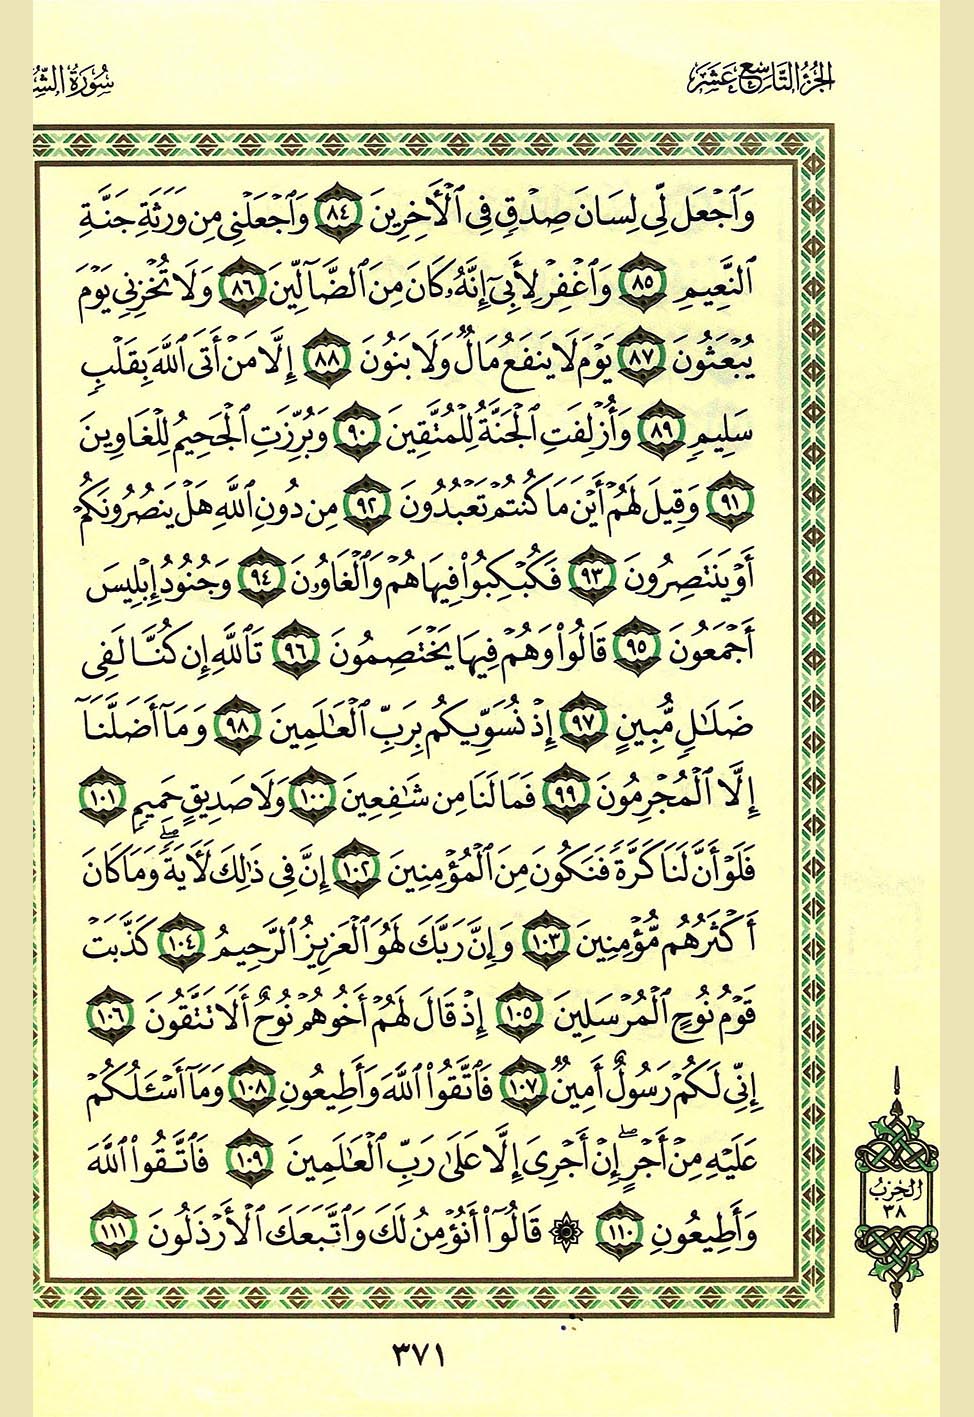 الجزء التاسع عشر
سورة
وَٱجۡعَل لِّي لِسَانَ صِدۡقٖ فِي ٱلۡأٓخِرِينَ ٨٤ وَٱجۡعَلۡنِي مِن وَرَثَةِ جَنَّةِ
ٱلنَّعِيمِ ٨٥ وَٱغۡفِرۡ لِأَبِيٓ إِنَّهُۥ كَانَ مِنَ ٱلضَّآلِّينَ ٨٦ وَلَا تُخۡزِنِي يَوۡمَ
يُبۡعَثُونَ ٨٧ يَوۡمَ لَا يَنفَعُ مَالٞ وَلَا بَنُونَ ٨٨ إِلَّا مَنۡ أَتَى ٱللَّهَ بِقَلۡبٖ
سَلِيمٖ ٨٩ وَأُزۡلِفَتِ ٱلۡجَنَّةُ لِلۡمُتَّقِينَ ٩٠ وَبُرِّزَتِ ٱلۡجَحِيمُ لِلۡغَاوِينَ
٩١ وَقِيلَ لَهُمۡ أَيۡنَ مَا كُنتُمۡ تَعۡبُدُونَ ٩٢ مِن دُونِ ٱللَّهِ هَلۡ يَنصُرُونَكُمۡ
أَوۡ يَنتَصِرُونَ ٩٣ فَكُبۡكِبُواْ فِيهَا هُمۡ وَٱلۡغَاوُۥنَ ٩٤ وَجُنُودُ إِبۡلِيسَ
أَجۡمَعُونَ ٩٥ قَالُواْ وَهُمۡ فِيهَا يَخۡتَصِمُونَ ٩٦ تَٱللَّهِ إِن كُنَّا لَفِي
ضَلَٰلٖ مُّبِينٍ ٩٧ إِذۡ نُسَوِّيكُم بِرَبِّ ٱلۡعَٰلَمِينَ ٩٨ وَمَآ أَضَلَّنَآ
إِلَّا ٱلۡمُجۡرِمُونَ ٩٩ فَمَا لَنَا مِن شَٰفِعِينَ ١٠٠ وَلَا صَدِيقٍ حَمِيمٖ ١٠١
فَلَوۡ أَنَّ لَنَا كَرَّةٗ فَنَكُونَ مِنَ ٱلۡمُؤۡمِنِينَ ١٠٢ إِنَّ فِي ذَٰلِكَ لَأٓيَةٗۖ وَمَا كَانَ
أَكۡثَرُهُم مُّؤۡمِنِينَ ١٠٣ وَإِنَّ رَبَّكَ لَهُوَ ٱلۡعَزِيزُ ٱلرَّحِيمُ ١٠٤ كَذَّبَتۡ
قَوۡمُ نُوحٍ ٱلۡمُرۡسَلِينَ ١٠٥ إِذۡ قَالَ لَهُمۡ أَخُوهُمۡ نُوحٌ أَلَا تَتَّقُونَ ١٠٦
إِنِّي لَكُمۡ رَسُولٌ أَمِينٞ ١٠٧ فَٱتَّقُواْ ٱللَّهَ وَأَطِيعُونِ ١٠٨ وَمَآ أَسۡـَٔلُكُمۡ
عَلَيۡهِ مِنۡ أَجۡرٍۖ إِنۡ أَجۡرِيَ إِلَّا عَلَىٰ رَبِّ ٱلۡعَٰلَمِينَ ١٠٩ فَٱتَّقُواْ ٱللَّهَ
وَأَطِيعُونِ ١١٠ ۞ قَالُوٓاْ أَنُؤۡمِنُ لَكَ وَٱتَّبَعَكَ ٱلۡأَرۡذَلُونَ ١١١
الحزب
٣٨
٣٧١